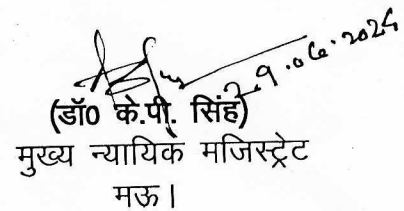 29.06.2024
(डॉ0 के.पी. सिंह)
मुख्य न्यायिक मजिस्ट्रेट
मऊ।